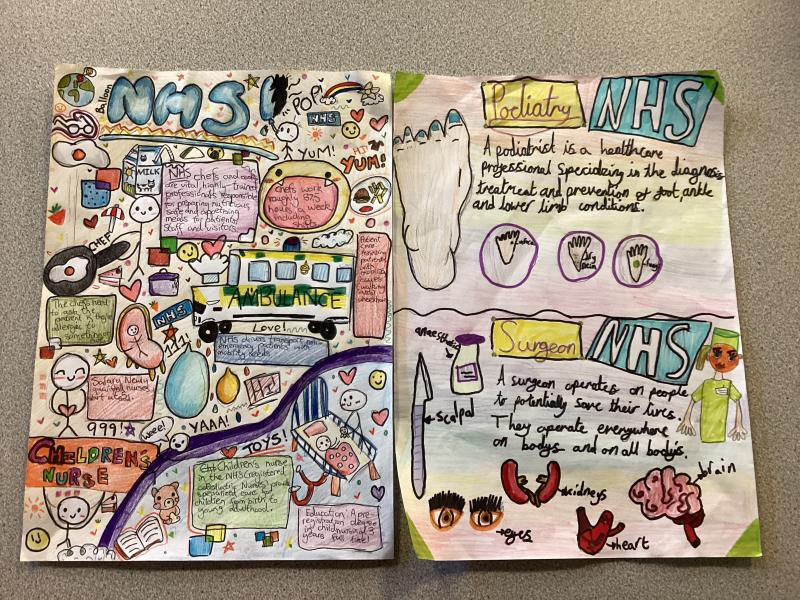 Balloon
NHS!
POP!
NHS
YUM!
YUM!
MILK
NHS chefs and cooks
are vital highly-trained
professionals responsible
for preparing nutritious
safe and appetising
meals for patients
staff and visitors.
chefs work
roughly 37.5
hours a week
including
shifts
CHEF
Patient
care
patients
with
mobility
AMBULANCE
The chefs need
to ask the
patient if they're
allergic to
something
NHS
111!
Love!
NHS drivers transport non
emergency patients with
mobility needs
Salary Newly
qualified nurses
start
Hi!
999!
weee!
YAAA!
TOYS!
CHILDREN'S
NURSE
Children's nurse
in the NHS (registered
Nurse) provides
specialized care for
children from birth to
young adulthood.
Education: A pre-
registration degree
in child nursing 3
years full time!
Podiatry
NHS
A podiatrist is a healthcare
professional specializing in the diagnosis
treatment and prevention of foot, ankle
and lower limb conditions.
Dry
skin
Surgeon
NHS
anaesthetic
scalpal
A surgeon operates on people
to potentially save their lives.
They operate everywhere
on bodys and on all body's.
brain
kidneys
eyes
heart